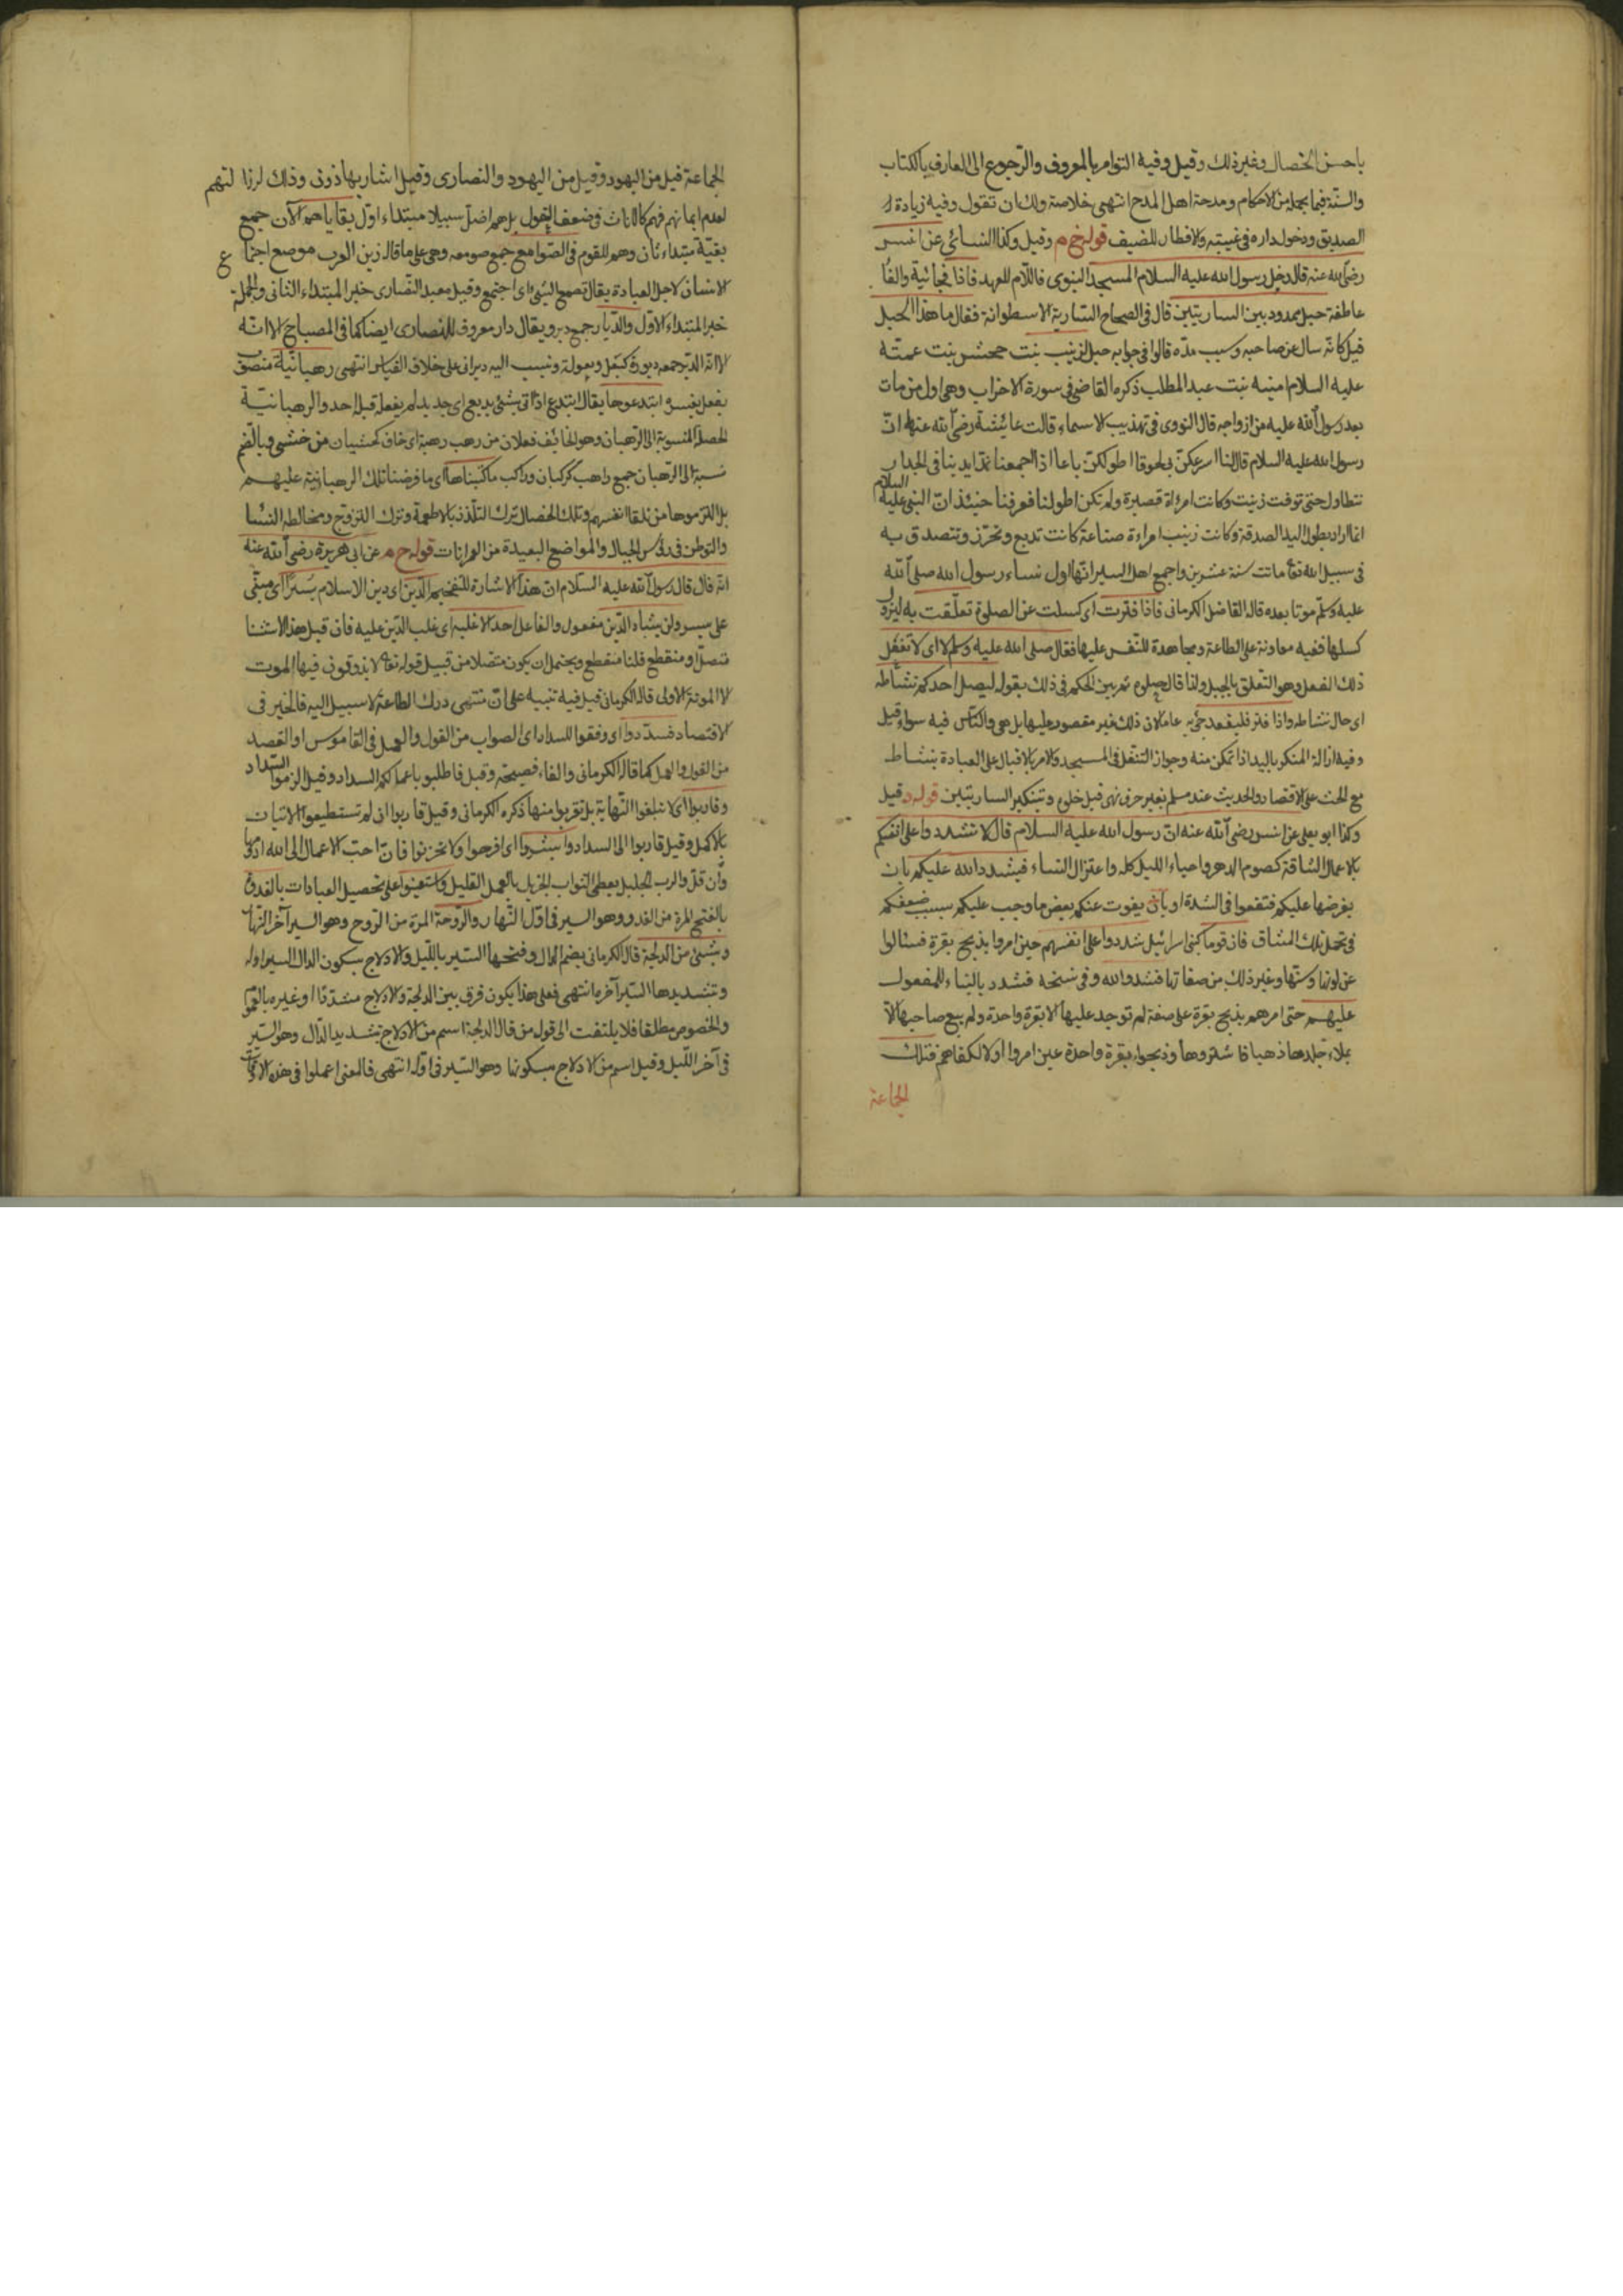 باحسن الخصال وغير ذلك وقيل وفيه التوامر بالمعروف والرجوع الى العارف بالكتاب
والسنة فيما يجهله من الاحكام ومدحة اهل المدح انتهى خلاصة ولك ان تقول وفيه زيادة
الصديق ودخول داره في غيبته والافطار للضيف قوله خ م وقيل وكذا النسائي عن انس
رضي الله عنه قال دخل رسول الله عليه السلام المسجد النبوى فاللام للعهد فاذا فجائية والفا
عاطفة حبل ممدود بين الساريتين قال في الصحاح السارية الاسطوانة فقال ما هذا الحبل
قيل كانه سال عن صاحبه وسبب مده قالوا في جوابه حبل لزينب بنت جحش بنت عمته
عليه السلام اميمة بنت عبد المطلب ذكره القاضى في سورة الاحزاب وهى اول من مات
بعد رسول الله عليه من ازواجه قال النووى في تهذيب الاسماء قالت عايشة رضي الله عنها ان
رسول الله عليه السلام قال لنا اسرعكن بى لحوقا اطولكن باعا اذا اجمعنا نمد ايدينا في الجدار
نتطاول حتى توفت زينب وكانت امرأة قصيرة ولم تكن اطولنا فعرفنا حينئذ ان النبي عليه السلام
انما اراد بطول اليد الصدقة وكانت زينب امراءة صناعة كانت تدبع وتخرز وتتصدق به
في سبيل الله تعالى ماتت سنة عشرين واجمع اهل السير انها اول نساء رسول الله صلى الله
عليه وسلم موتا بعده قاله القاضل الكرمانى فاذا فترت اى كسلت عن الصلوة تعلقت به ليزول
كسلها ففيه معاونة على الطاعة ومجاهدة للنفس عليها فقال صلى الله عليه وسلم لا اى لا تفعل
ذلك الفعل وهو التعلق بالحبل ولذا قال حلوه ثم بين الحكم في ذلك بقوله ليصل احدكم نشاطه
اى حال نشاطه واذا فتر فليقعد جئ به عاما لان ذلك غير مقصور عليها بل هى والناس فيه سواء قيل
وفيه ازالة المنكر باليد اذا تمكن منه وجواز التنفل في المسجد والامر بالاقبال على العبادة بنشاط
مع الحث على الاقتصار والحديث عند مسلم بغير حرف نهى قبل حلوه وبتنكير الساريتين قوله د وقيل
وكذا ابو يعلى عن انس رضي الله عنه ان رسول الله عليه السلام قال لا تشددوا على انفسكم
بالاعمال الشاقة كصوم الدهر واحياء الليل كله واعتزال النساء فيشدد الله عليكم بان
يفرضها عليكم فتقعوا في الشدة او بان يفوت عنكم بعض ما وجب عليكم بسبب ضعفكم
في تحمل تلك المشاق فان قوما كبنى اسرائيل شددوا على انفسهم حين امروا بذبح بقرة فسئالوا
عن لونها وسنها وغير ذلك من صفاتها فشدد الله وفي نسخه فشدد بالبناء للمفعول
عليهم حتى امرهم بذبح بقرة على صفة لم توجد عليها الا بقرة واحدة ولم يبع صاحبها الا
بملاء جلدها ذهبا فاشتروها وذبحوا بقرة واحدة عين امروا اولا لكفاهم فتلك
الجماعة
الجماعة قيل من اليهود وقيل من اليهود والنصارى وقيل اشار بهاذونى وذلك لرزا لتهم
لعدم ايمانهم فهم كالاناث في ضعف العقول بل هم اضل سبيلا مبتداء اول بقاياهم الآن جمع
بقية مبتداء ثان وهم للقوم في الصوامع جمع صومعه وهى على ما قاله زين العرب موضع اجتماع
الانسان لاجل العبادة يقال تصمع الشئ اى اجتمع وقيل معبد النصارى خبر المبتداء الثانى والجملة
خبر المبتداء الاول والديار جمع دير ويقال دار معروف للنصارى ايضا كما في المصباح الا انه
الا انه الدير جمعه ديورة كبعل وبعولة ونسب اليه ديرانى على خلاف القياس انتهى رهبانية منصوب
بفعل يفسره ابتدعوها يقال ابتدع اذا اتى بشئ بديع اى جديد لم يفعله قبله احد والرهبانية
الخصلة المنسوبة الى الرهبان وهو الخايف فعلان من رهب رهبة اى خاف كخشيان من خشى وبالضم
نسبة الى الرهبان جمع راهب كركبان وراكب ما كتبناها اى ما فرضنا تلك الرهبانية عليهم
بل التزموها من تلقا انفسهم وتلك الخصال ترك التلذذ بالاطعمة وترك التزوج ومخالطة النسا
والتوطن في رؤس الجبال والمواضع البعيدة من العمرانات قوله خ م عن ابى هريرة رضي الله عنه
انه قال قال رسول الله عليه السلام ان هذا الاشارة للتفخيم الدين اى دين الاسلام يسر اى مبنى
على يسر ولن يشاد الدين مفعول والفاعل احد الا غلبه اى غلب الدين عليه فان قيل هذا الاستثنا
متصل او منقطع قلنا منقطع ويحتمل ان يكون متصلا من قبيل قوله تعالى لا يذوقون فيها الموت
الا الموتة الاولى قاله الكرمانى قيل فيه تنبيه على ان منتهى درك الطاعة لا سبيل اليه فالخير في
الاقتصاد فسددوا اى وفقوا للسداد اى الصواب من القول والعمل في القاموس او القصد
من القول والعمل كما قاله الكرمانى والفاء فصيحة وقيل فاطلبوا باعمالكم السداد وقيل الزموا السداد
وقاربوا اى لا تبلغوا النهاية بل تقربوا منها ذكره الكرمانى وقيل قاربوا ان لم تستطيعوا الاتيان
بالاكمل وقيل قاربوا الى السداد وابشروا اى افرحوا ولا تحزنوا فان احب الاعمال الى الله ادومها
وان قل والرب الجليل يعطى الثواب الجزيل بالعمل القليل واستعينوا على تحصيل العبادات بالغدوة
بالفتح المرة من الغدو وهو السير في اول النهار والروحة المرة من الروح وهو السير آخر النهار
وبشئ من الدلجة قال الكرمانى بضم الدال وفتحها السير بالليل والادلاج بسكون الدال السير اوله
وتشديدها السير آخره انتهى فعلى هذا يكون فرق بين الدلجة والادلاج مشددا او غيره بالعموم
والخصوص مطلقا فلا يلتفت الى قول من قال الدلجة اسم من الادلاج بتشديد الدال وهو السير
في آخر الليل وقيل اسم من الادلاج بسكونها وهو السير في اوله انتهى فالمعنى اعملوا في هذه الاوقات